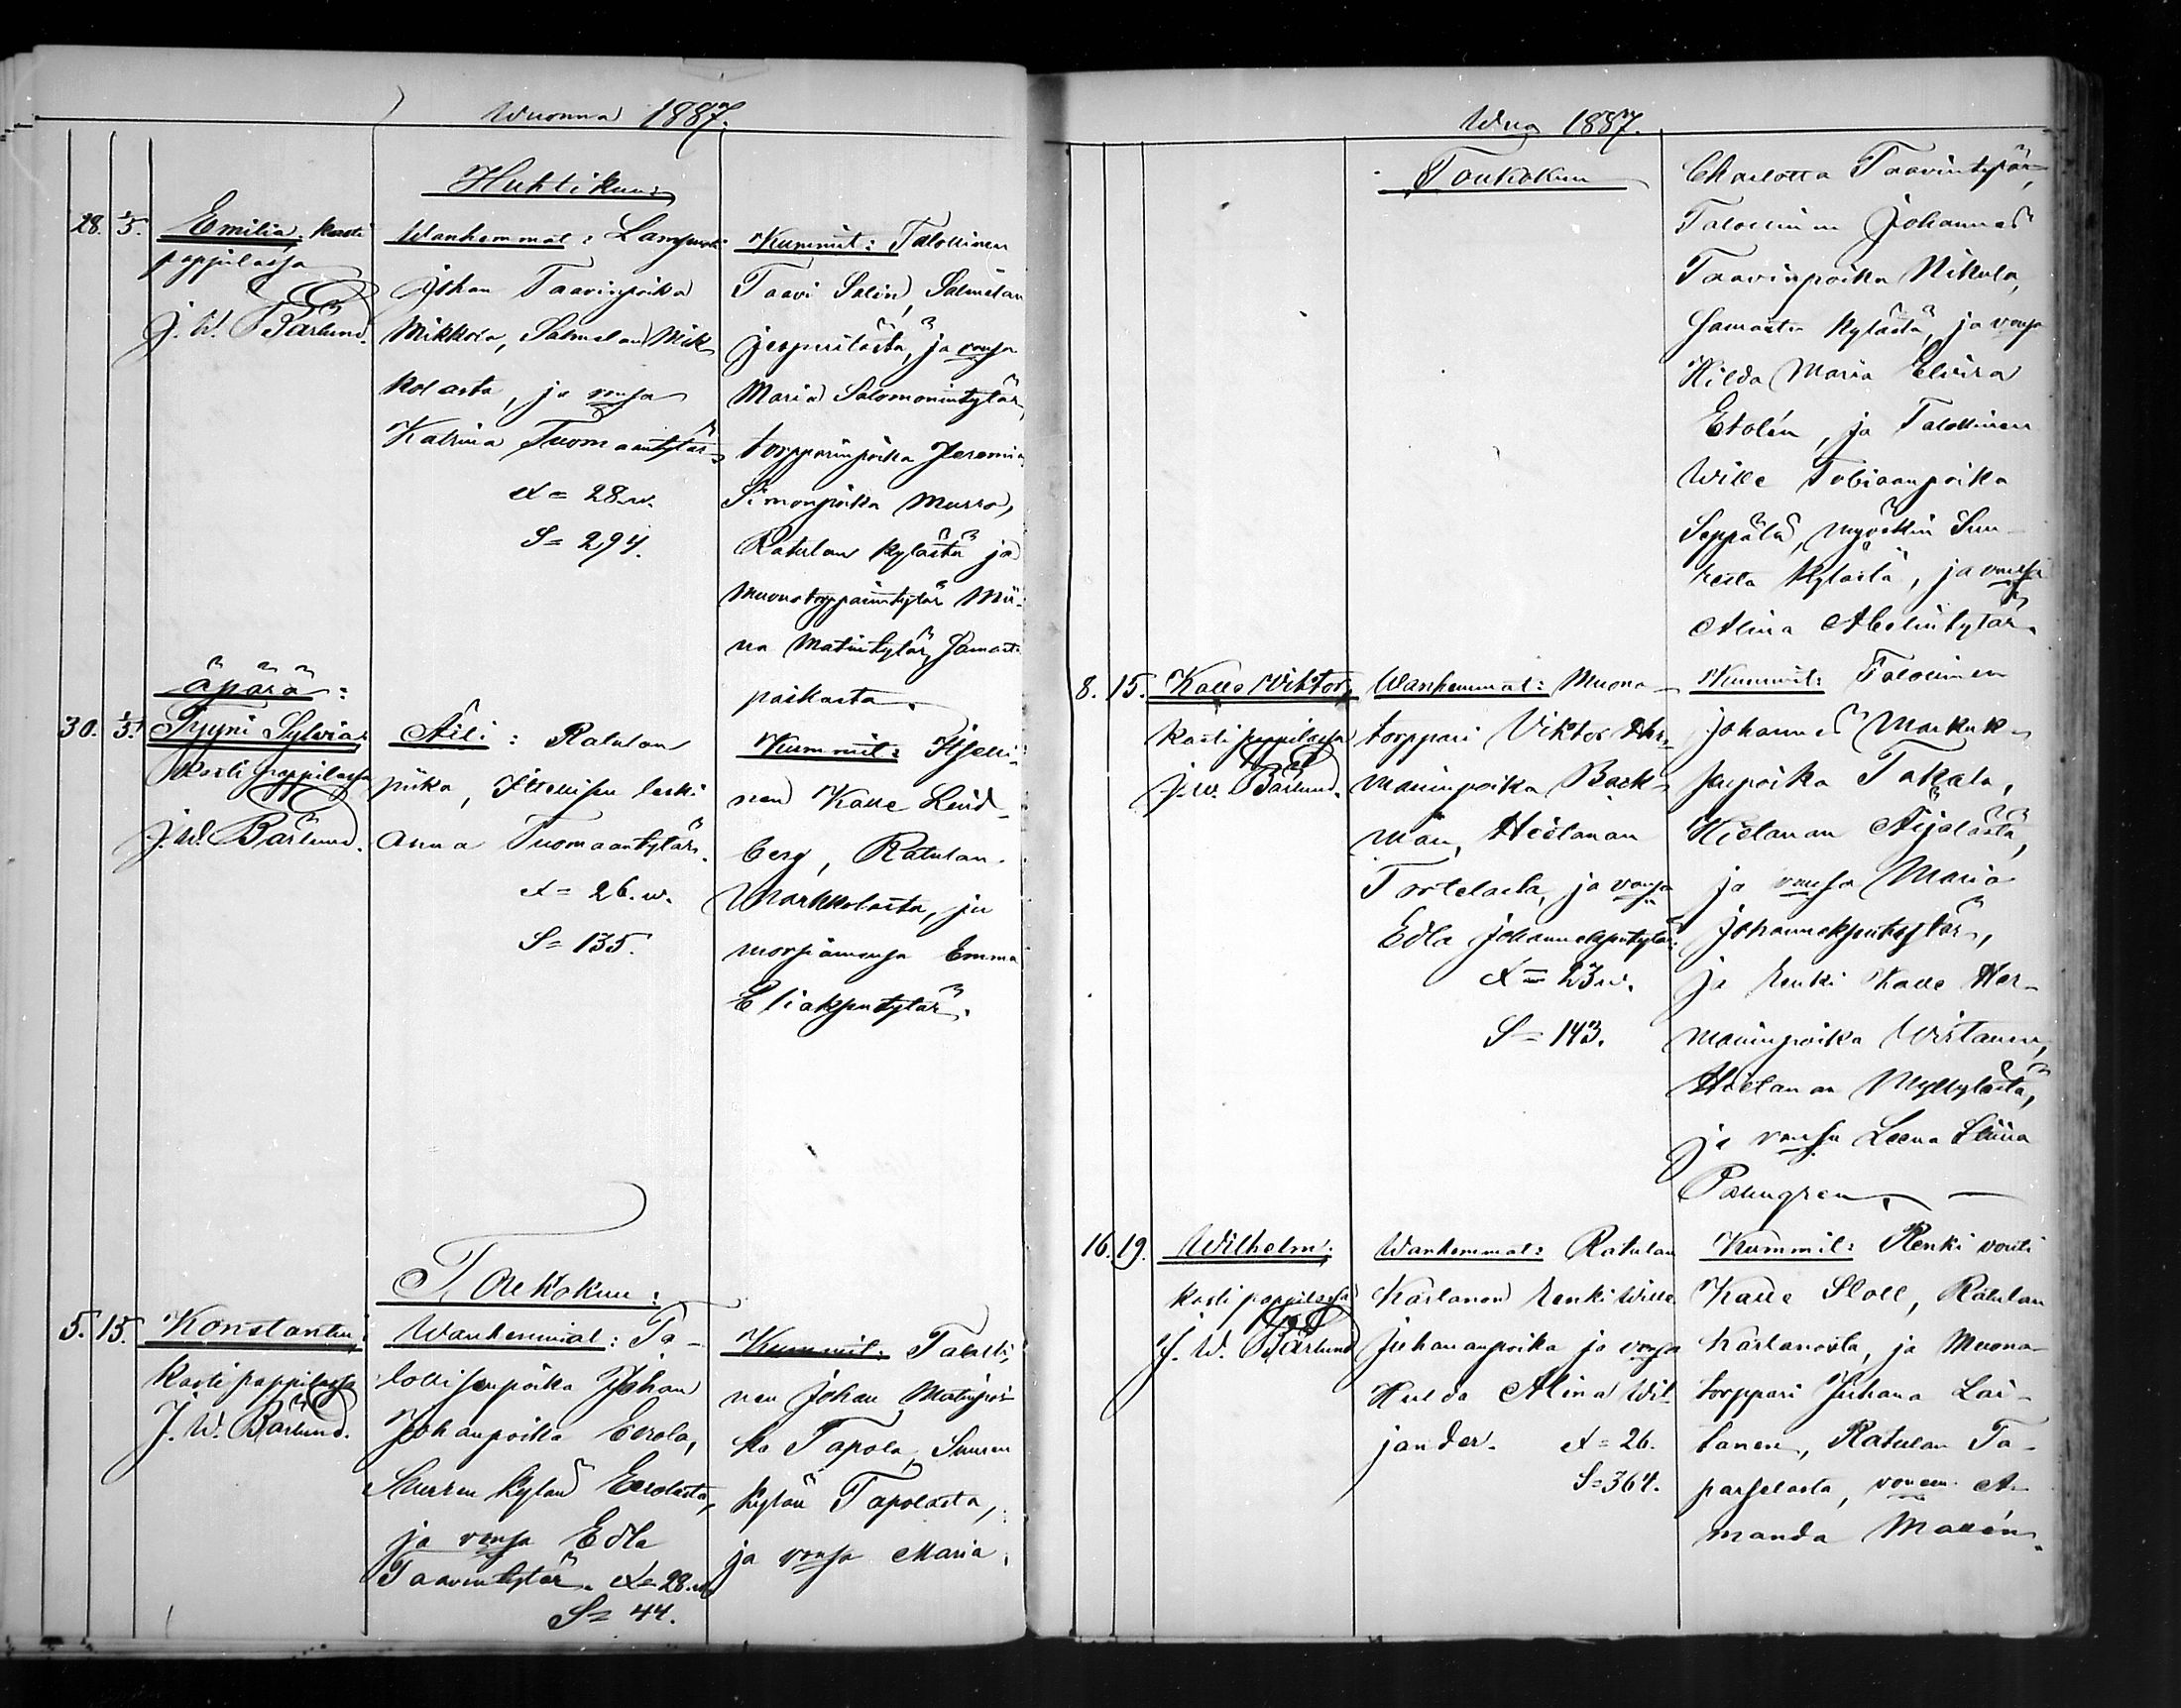 Wuonna 1887.
Huhtikuu:
28. 1/5. Emilia, kasti
pappilassa
J. W. Bärlund.
Wanhemmat: Lampuoti
Johan Taavinpoika
Mikkola, Salmelan Mik-
kolasta, ja vmsa
Katriina Tuomaantytär
ä = 28 w.
S = 294.
Kummit: Talollinen
Taavi Salin, Salmelan
Jesperilästä, ja vmsa
Maria Salomonintytär,
torpparinpoika Jeremia
Simonpoika Murro,
Ratulan kylästä ja
Muonatorpparintytär Mii-
na Matintytär, samasta
paikasta.
äpärä:
30. 1/5. Tyyni Sylvia,
kasti pappilassa
J. W. Bärlund.
Äiti: Ratulan
piika, Itsellisen leski
Anna Tuomaantytär.
ä = 26. w.
S = 135.
Kummit: Itselli-
nen Kalle Lind-
berg, Ratulan
Markkolasta, ja
morsiamensa Emma
Eliaksentytär.
Toukokuu:
5. 15. Konstantin,
kasti pappilassa
J. W. Bärlund.
Wanhemmat: Ta-
lollisenpoika Johan
Johanpoika Eerola,
Suuren kylän Eerolasta,
ja vmsa Edla
Taavintytär. ä = 28. w.
S = 44.
Kummit: Talolli-
nen Johan Matinpoi-
ka Tapola, Suuren
kylän Tapolasta,
ja vmsa Maria
Wuo 1887.
Toukokuu
Charlotta Taavintytär,
Talollinen Johannes
Taavinpoika Nikula,
samasta kylästä, ja vmsa
Hilda Maria Elvira
Etolén, ja Talollinen
Wille Tobiaanpoika
Seppälä, myöskin Suu-
resta kylästä, ja vmsa
Alina Abelintytär.
8. 15. Kalle Viktor,
kasti pappilassa
J. W. Bärlund.
Wanhemmat: Muona-
torppari Viktor Her-
maninpoika Back-
man, Hietanan
Tortelasta, ja vmsa
Edla Johanneksentytär.
ä = 23 w.
S = 143.
Kummit: Talollinen
Johannes Markuk-
senpoika Takala,
Hietanan Äijälästä,
ja vmsa Maria
Johanneksentytär,
ja renki Kalle Her-
maninpoika Wirtanen,
Hietanan Myllylästä,
ja vmsa Leena Stiina
Palmgren.
16. 19. Wilhelm,
kasti pappilassa
J. W. Bärlund
Wanhemmat: Ratulan
Kartanon renki Wille
Juhananpoika ja vmsa
Hulda Alina Wil-
jander. ä = 26.
S = 364.
Kummit: Renki vouti
Kalle Stoll, Ratulan
kartanosta, ja Muona-
torppari Juhana Lai-
tanen, Ratulan Ta-
parselasta, A-
manda Malén.